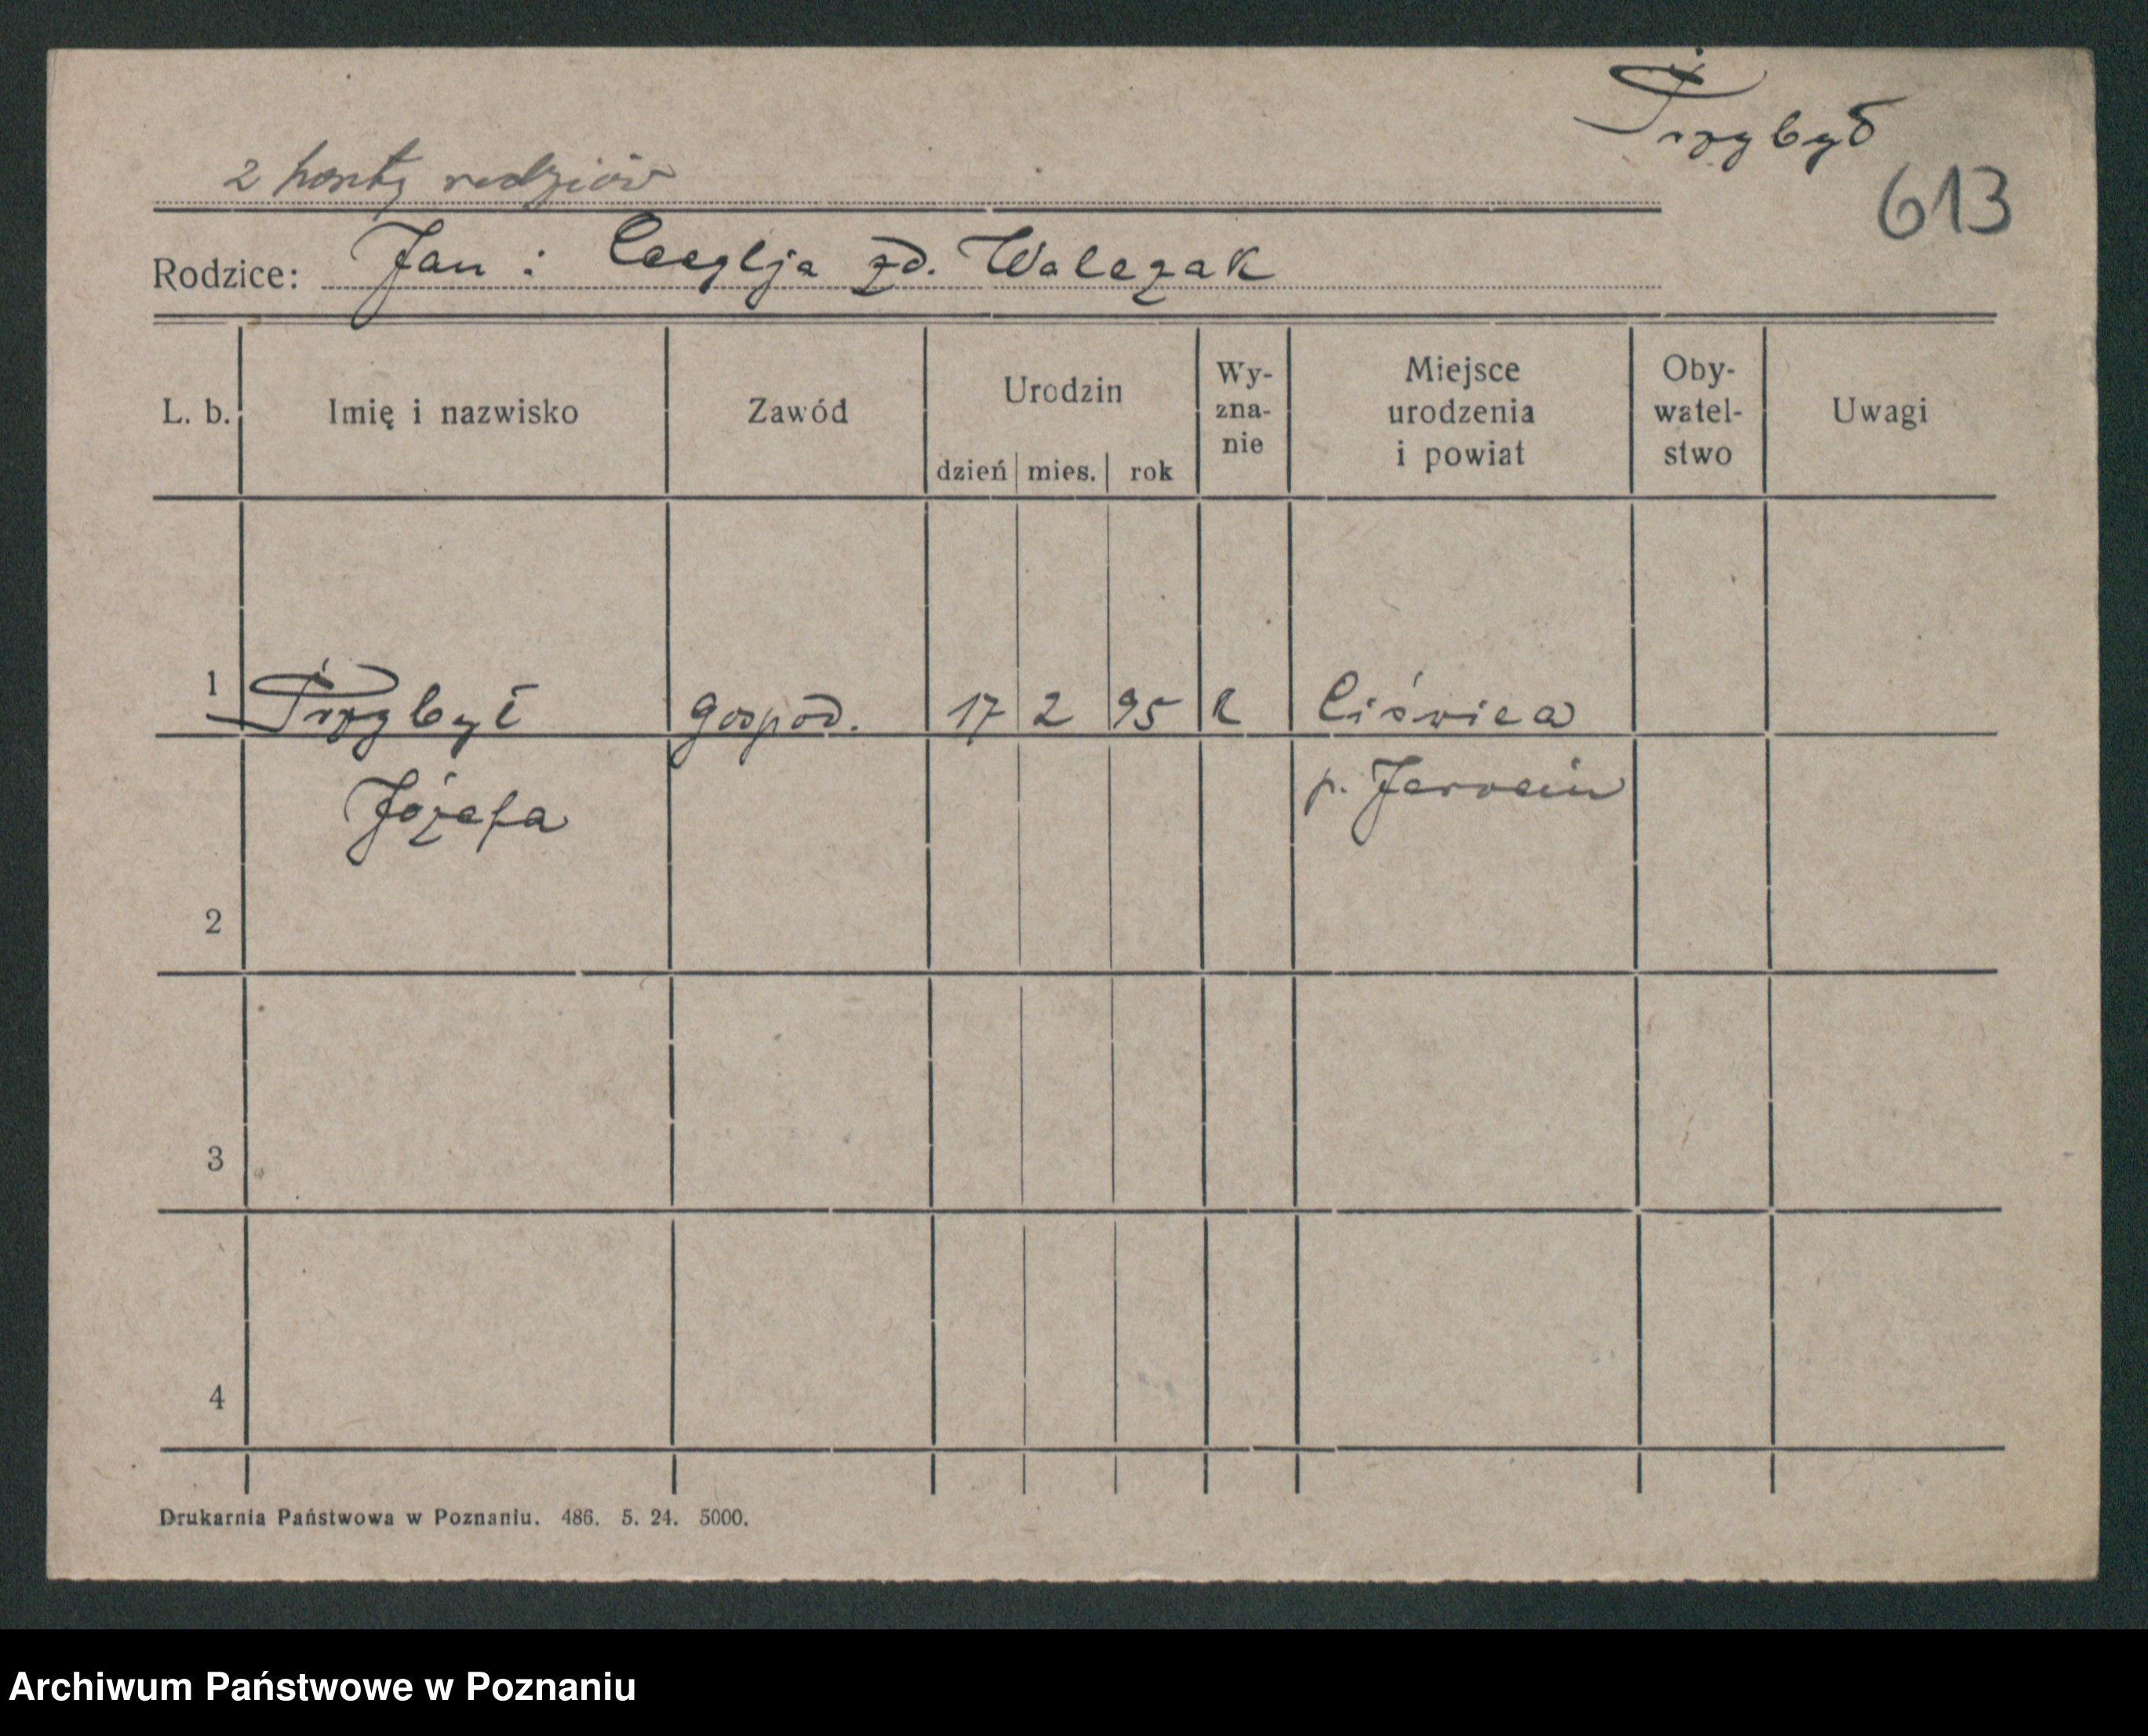 Przybył
613
2 karty rodziców
Rodzice: Jan i Cecylja zd. Walczak
L. b. Imię i nazwisko Zawód Urodzin dzień mies. rok Wy-zna-nie Miejsce urodzenia i powiat Oby-watel-stwo Uwagi
1 Przybył gospod. 17 2 95 k Ciświca
Józefa p. Jarocin
2
3
4
Drukarnia Państwowa w Poznaniu. 486. 5. 24. 5000.
Archiwum Państwowe w Poznaniu